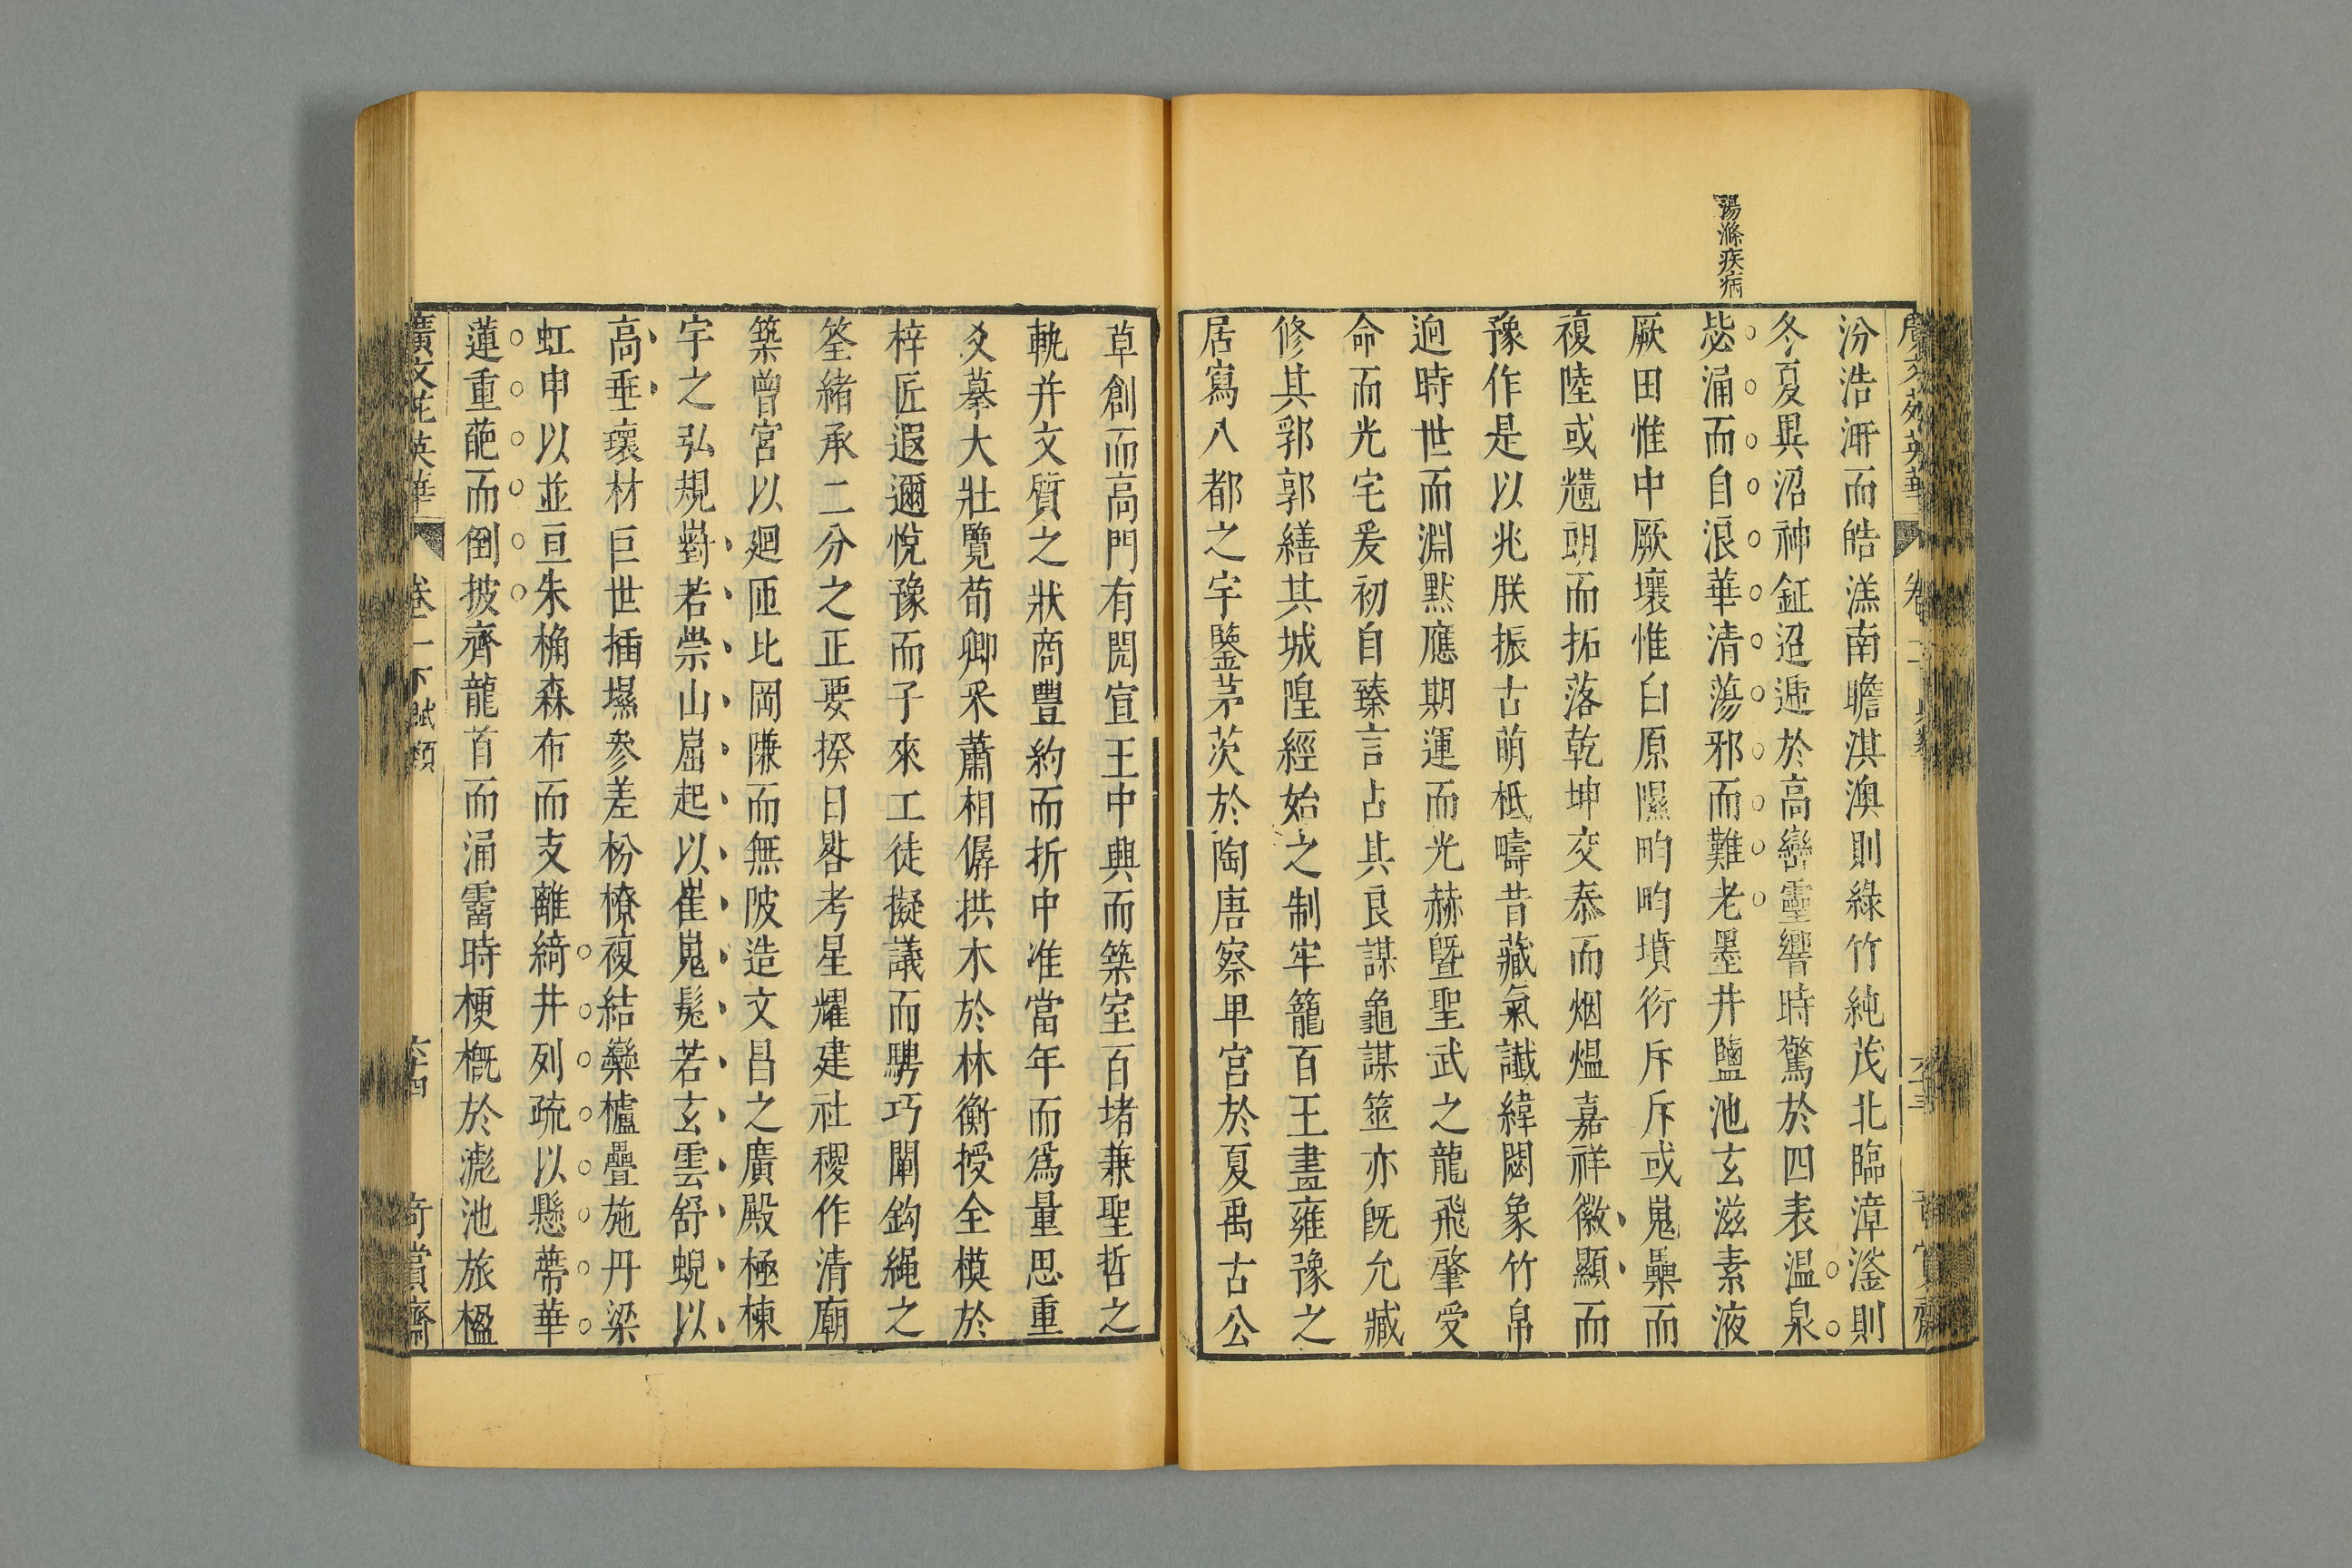 廣文苑英華 卷
蕩滌疾病
汾浩汧而皓溔南瞻淇澳則綠竹純茂北臨漳滏則
冬夏異沼神鉦迢遞於高巒靈響時驚於四表温泉
毖涌而自浪華清蕩邪而難老墨井鹽池玄滋素液
厥田惟中厥壤惟白原隰畇畇墳衍斥斥或嵬壘而
複陸或爌朗而拓落乾坤交泰而烟煴嘉祥徽顯而
豫作是以兆朕振古萌柢疇昔藏氣讖緯閟象竹帛
逈時世而淵默應期運而光赫曁聖武之龍飛肇受
命而光宅爰初自臻言占其良謀龜謀筮亦旣允臧
修其郛郭繕其城隍經始之制牢籠百王畫雍豫之
居寫八都之宇鑒茅茨於陶唐察卑宮於夏禹古公
草創而高門有閌宣王中興而築室百堵兼聖哲之
軌并文質之狀商豐約而折中准當年而爲量思重
爻摹大壯覽荀卿采蕭相僝拱木於林衡授全模於
梓匠遐邇悅豫而子來工徒擬議而騁巧闡鈎繩之
筌緒承二分之正要揆日晷考星耀建社稷作清廟
築曾宮以廻匝比岡隒而無陂造文昌之廣殿極棟
宇之弘規對若崇山崛起以崔嵬髧若玄雲舒蜺以
高垂瓌材巨世插㙷參差枌橑複結欒櫨疊施丹梁
虹申以並亘朱桷森布而支離綺井列疏以懸蔕華
蓮重葩而倒披齊龍首而涌霤時梗槪於滮池旅楹
廣文苑英華 卷二下賦類 六十四 奇賞齋